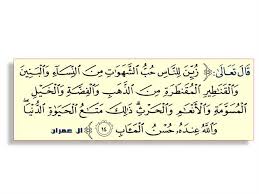 قَالَ تَعَالَىٰ: ﴿ زُيِّنَ لِلنَّاسِ حُبُّ ٱلشَّهَوَٰتِ مِنَ ٱلنِّسَآءِ وَٱلْبَنِينَ
وَٱلْقَنَٰطِيرِ ٱلْمُقَنطَرَةِ مِنَ ٱلذَّهَبِ وَٱلْفِضَّةِ وَٱلْخَيْلِ
ٱلْمُسَوَّمَةِ وَٱلْأَنْعَٰمِ وَٱلْحَرْثِ ذَٰلِكَ مَتَٰعُ ٱلْحَيَوٰةِ ٱلدُّنْيَا ۖ
وَٱللَّهُ عِندَهُۥ حُسْنُ ٱلْمَـَٔابِ ١٤ ﴾ آل عمران